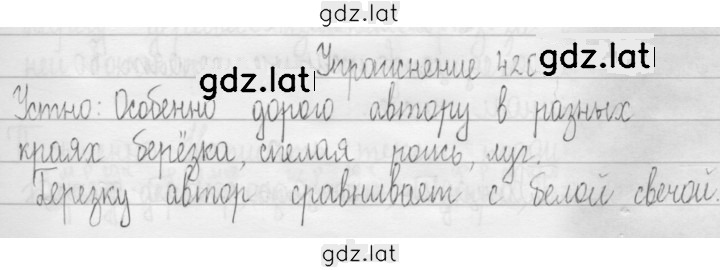 gdz.lat
Упражнение 420
gdz.lat gdz.lat
Устно: Особенно дорого автору в разных
краях берёзка, спелая рожь, луг.
Березку автор сравнивает с белой свечой.
gdz.lat